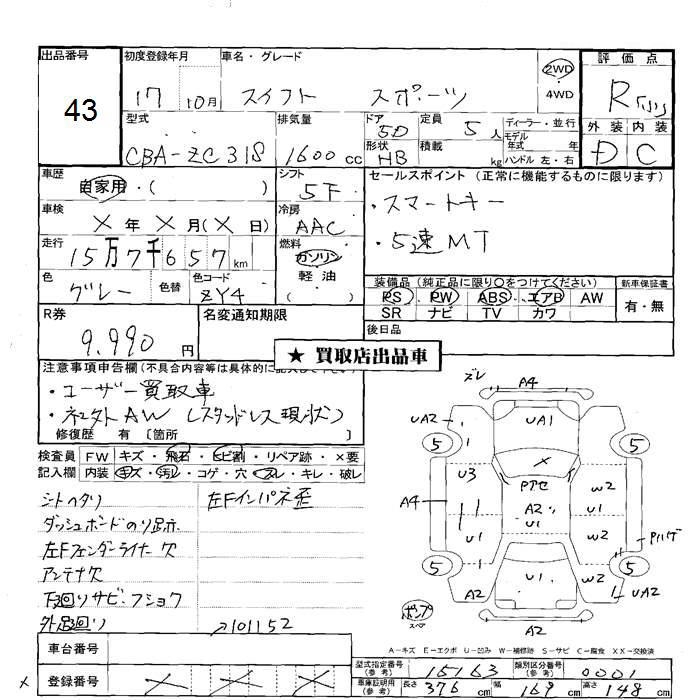 出品番号 初度登録年月 車名・グレード 2WD 評価点
43 17 10月 スイフト スポーツ 4WD R
型式 排気量 ドア 5D 定員 5人 ディーラー・並行 外装 内装
モデル年式 年
CBA-ZC31S 1600cc 形状 HB 積載 kg ハンドル 左・右 D C
車歴 シフト セールスポイント (正常に機能するものに限ります)
自家用・( ) 5F ・スマートキー
車検 冷房
X年X月(X日) AAC ・5速MT
走行 燃料
15万7千657km ガソリン
軽油
色 色替 色コード ( ) 装備品(純正品に限り○をつけてください) 新車保証書
グレー ZY4 PS PW ABS エアB AW 有・無
SR ナビ TV カワ
R券 名変通知期限 後日品
9,990円
★ 買取店出品車
注意事項申告欄(不具合内容等は具体的に記入して下さい)
・ユーザー買取車
・ネクストAW (スタッドレス現状)
修復歴 有 〔箇所 〕
検査員 FW キズ・飛石・ヒビ割・リペア跡・×要
記入欄 内装 キズ・汚レ・コゲ・穴・スレ・キレ・破レ
シートヘタリ 左Fインパネ歪
ダッシュボードのり跡
左Fフェンダーライナー欠
アンテナ欠
下廻りサビ・フショク
外足廻り →101152
ズレ A4
UA2 UA1
5 5
U3 X W2
Pアセ
A4 A2 U1 U1
U1 W2 Pハゲ
5 5
A2 U1 W2 UA2
ポンプ
スペア A2
A−キズ E−エクボ U−凹み W−補修跡 S−サビ C−腐食 XX−交換済
車台番号 型式指定番号(参考) 15163 類別区分番号(参考) 0001
× 登録番号 車庫証明用(参考) 長さ 376cm 幅 169cm 高さ 148cm